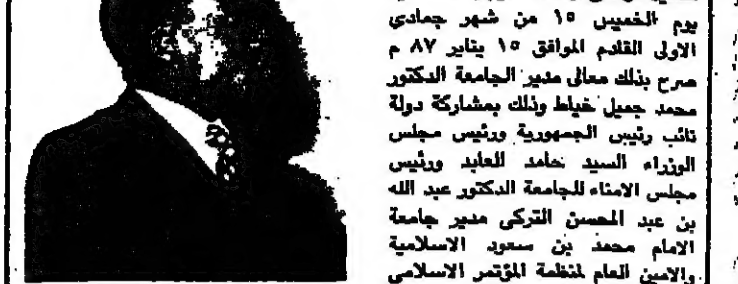 يوم الخميس ١٥ من شهر جمادي
الاولى القادم الموافق ١٥ يناير ٨٧ م
صرح بذلك معالى مدير الجامعة الدكتور
محمد جميل خياط وذلك بمشاركة دولة
نائب رئيس الجمهورية ورئيس مجلس
الوزراء السيد حامد العابد ورئيس
مجلس الامناء للجامعة الدكتور عبد الله
بن عبد المحسن التركى مدير جامعة
الامام محمد بن سعود الاسلامية
والامين العام لمنظمة المؤتمر الاسلامى